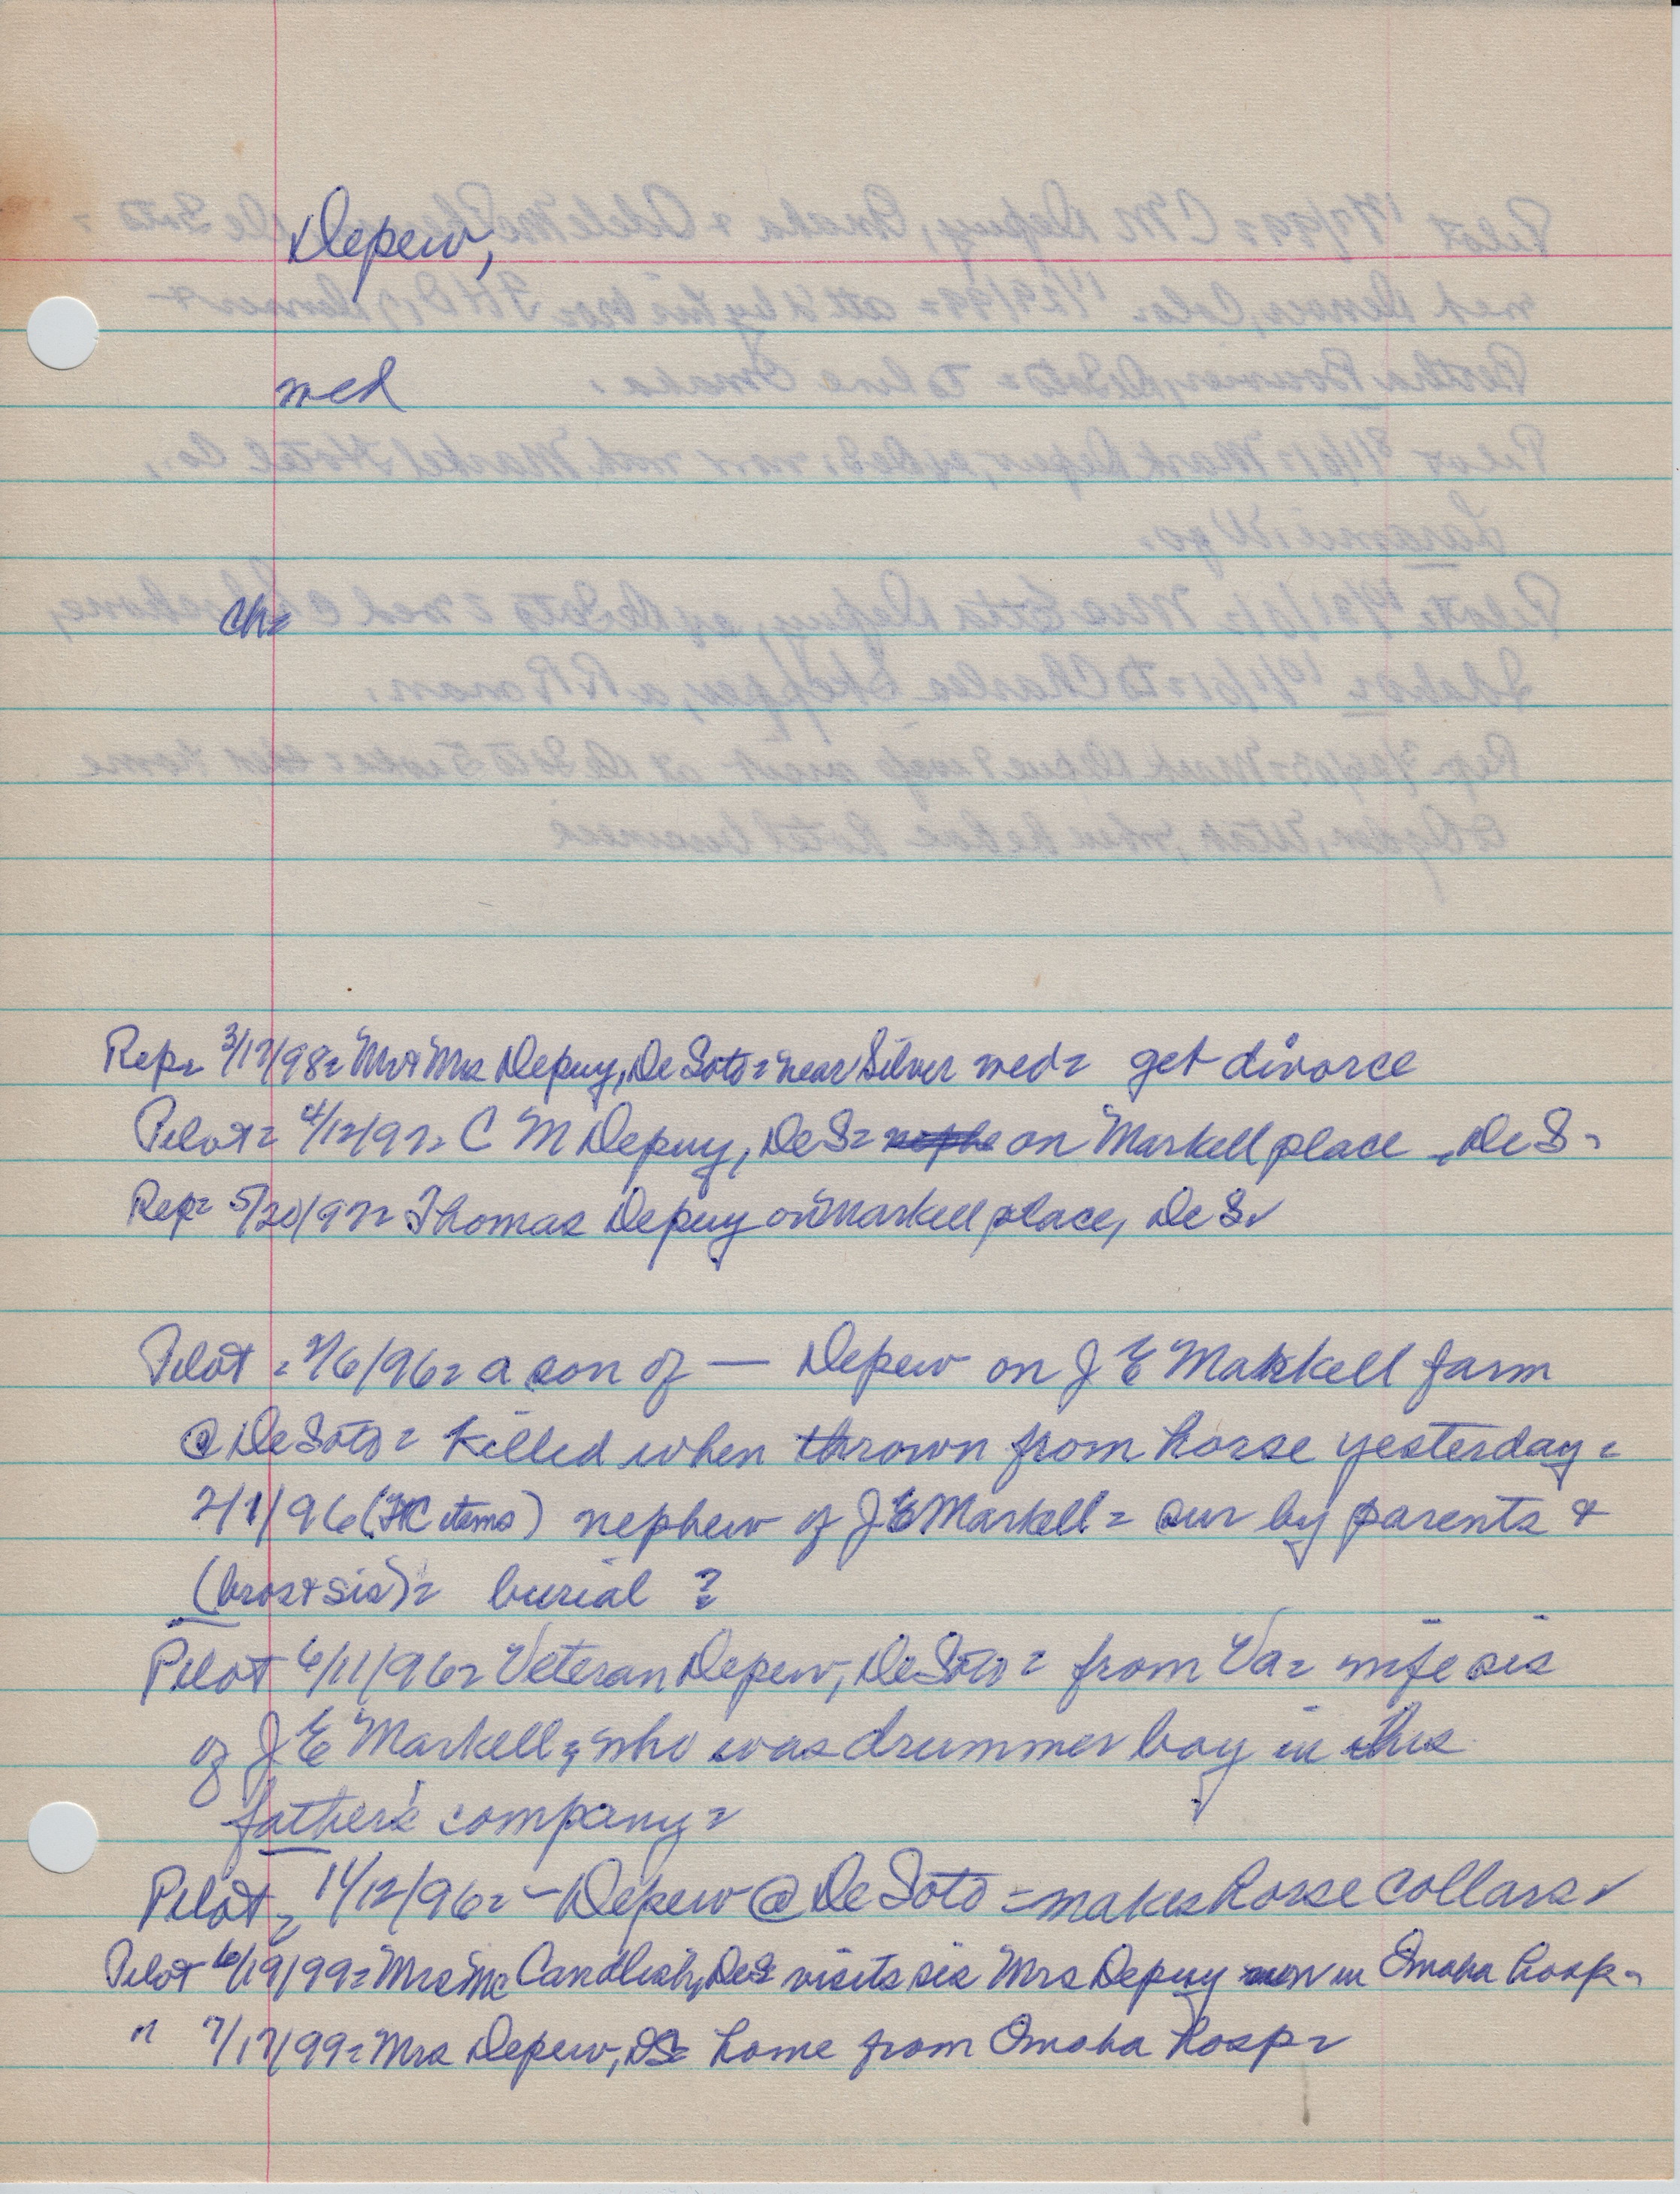 Depew,
med
Ch=
Rep= 3/17/98= Mr & Mrs Depuy, De Soto= near Silver wed= get divorce
Pilot= 4/12/97= C M Depuy, De S= on Markell place, De S=
Rep= 5/20/97= Thomas Depuy on Markell place, De S=
Pilot = 2/6/96= a son of — Depew on J E Markell farm
@ De Soto= killed when thrown from horse yesterday=
2/7/96 (FtC items) nephew of J E Markell= sur by parents &
(bros & sis)= burial ?
Pilot 6/11/96= Veteran Depew, De Soto= from Va= wife sis
of J E Markell, who was drummer boy in this
father's company=
Pilot= 11/12/96= — Depew @ De Soto = makes horse collars=
Pilot 6/19/99= Mrs McCandlish, DeS visits sis Mrs Depuy now in Omaha hosp=
" 7/17/99= Mrs Depew, DS= home from Omaha hosp=